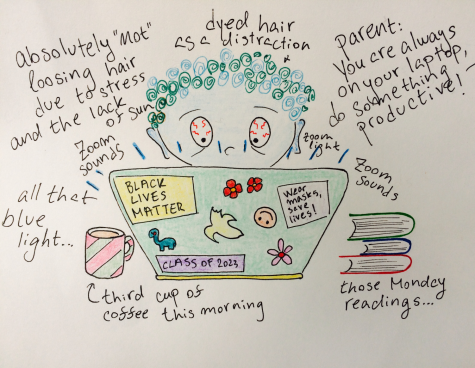 absolutely "not"
loosing hair
due to stress
and the lack
of sun
dyed hair
as a distraction
parent:
You are always
on your laptop,
do something
productive!
Zoom
sounds
zoom
light
Zoom
sounds
all that
blue
light...
BLACK
LIVES
MATTER
Wear
masks,
save
lives!
CLASS OF 2023
third cup of
coffee this morning
those Monday
readings...